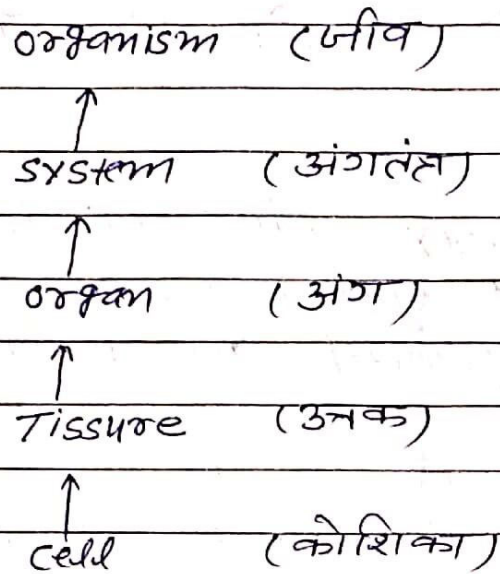 organism (जीव)
↑
system (अंगतंत्र)
↑
organ (अंग)
↑
Tissure (उत्तक)
↑
cell (कोशिका)